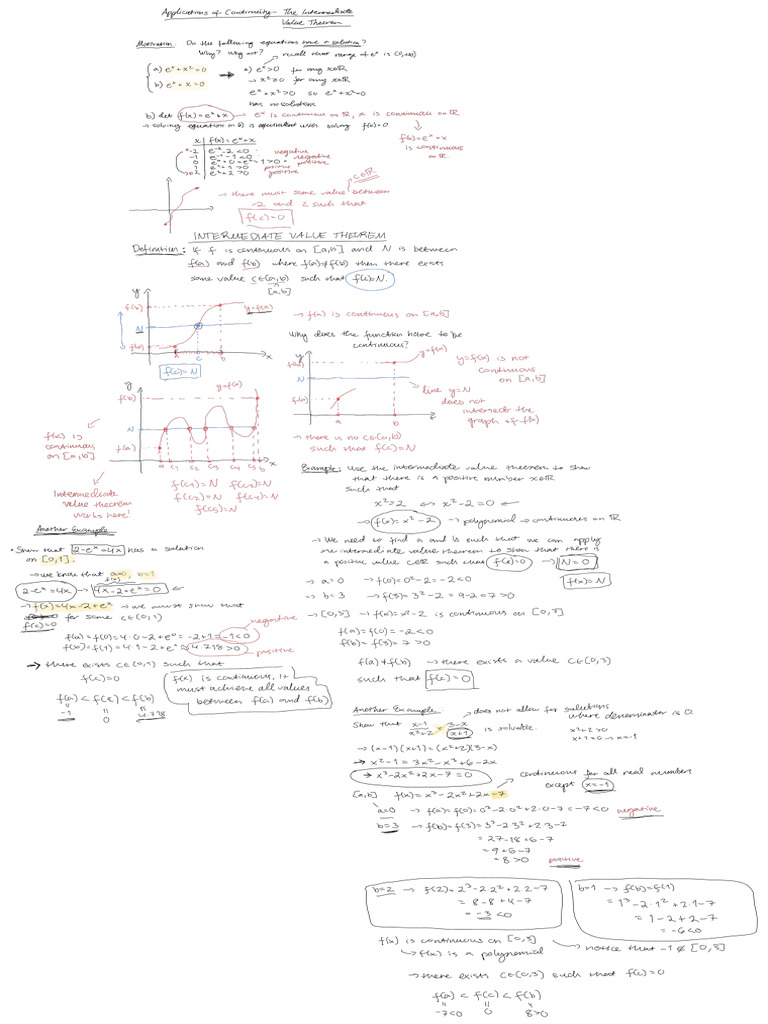 Applications of Continuity - The Intermediate
Value Theorem
Motivation: Do the following equations have a solution?
Why? Why not?
recall that range of e^x is (0,+∞)
a) e^x + x² = 0
b) e^x + x = 0
a) e^x > 0 for any x∈ℝ
→ x² ≥ 0 for any x∈ℝ
e^x + x² > 0 so e^x + x² ≠ 0
has no solution
b) let f(x) = e^x + x → e^x is continuous on ℝ, x is continuous on ℝ
→ solving equation in b) is equivalent with solving f(x) = 0
f(x) = e^x + x
is continuous
on ℝ
x | f(x) = e^x + x
-2 | e^-2 - 2 < 0 → negative
-1 | e^-1 - 1 < 0 negative
0 | e^0 + 0 = e^0 = 1 > 0 → positive
1 | e^1 + 1 > 0 positive
2 | e² + 2 > 0 positive
c∈ℝ
→ there must some value between
-2 and 2 such that
f(c) = 0
INTERMEDIATE VALUE THEOREM
Definition: If f is continuous on [a,b] and N is between
f(a) and f(b) where f(a) ≠ f(b) then there exists
some value c∈(a,b) such that f(c) = N.
[a,b]
y
f(b)
y = f(x)
N
f(a)
a c b x
f(c) = N
→ f(x) is continuous on [a,b]
Why does the function have to be
continuous?
y
f(b)
y = f(x)
N
f(a)
a b x
y = f(x) is not
continuous
on [a,b]
line y = N
does not
intersect the
graph of f(x)
→ there is no c∈(a,b)
such that f(c) = N
y
f(b)
y = f(x)
N
f(a)
a c1 c2 c3 c4 c5 b x
f(x) is
continuous
on [a,b]
Intermediate
value theorem
works here!
f(c1) = N f(c3) = N
f(c2) = N f(c4) = N
f(c5) = N
Example: Use the intermediate value theorem to show
that there is a positive number x∈ℝ
such that
x² = 2 ⟺ x² - 2 = 0
→ f(x) = x² - 2 → polynomial → continuous on ℝ
→ We need to find a and b such that we can apply
the intermediate value theorem to show that there is
a positive value c∈ℝ such that f(c) = 0 → N = 0
f(x) = N
→ a = 0 → f(0) = 0² - 2 = -2 < 0
→ b = 3 → f(3) = 3² - 2 = 9 - 2 = 7 > 0
→ [0,3] → f(x) = x² - 2 is continuous on [0,3]
f(a) = f(0) = -2 < 0
f(b) = f(3) = 7 > 0
f(a) ≠ f(b) → there exists a value c∈(0,3)
such that f(c) = 0
Another Example
• Show that 2 - e^x = 4x has a solution
on [0,1].
→ we know that a = 0, b = 1
f(x)
2 - e^x = 4x → 4x - 2 + e^x = 0
→ f(x) = 4x - 2 + e^x → we must show that
f(c) = 0 for some c∈(0,1)
f(a) = f(0) = 4·0 - 2 + e^0 = -2 + 1 = -1 < 0 negative
f(b) = f(1) = 4·1 - 2 + e^1 ≈ 4.718 > 0 positive
→ there exists c∈(0,1) such that
f(c) = 0
f(x) is continuous, it
must achieve all values
between f(a) and f(b)
f(a) < f(c) < f(b)
-1 0 4.718
Another Example:
does not allow for solutions
where denominator is 0.
Show that (x-1)/(x²+2) = (3-x)/(x+1) is solvable.
x² + 2 > 0
x + 1 = 0 → x = -1
→ (x-1)(x+1) = (x²+2)(3-x)
→ x² - 1 = 3x² - x³ + 6 - 2x
→ x³ - 2x² + 2x - 7 = 0
continuous for all real numbers
except x = -1
[a,b] f(x) = x³ - 2x² + 2x - 7
a = 0 → f(a) = f(0) = 0³ - 2·0² + 2·0 - 7 = -7 < 0 negative
b = 3 → f(b) = f(3) = 3³ - 2·3² + 2·3 - 7
= 27 - 18 + 6 - 7
= 9 + 6 - 7
= 8 > 0 positive
b = 2 → f(2) = 2³ - 2·2² + 2·2 - 7
= 8 - 8 + 4 - 7
= -3 < 0
b = 1 → f(b) = f(1)
= 1³ - 2·1² + 2·1 - 7
= 1 - 2 + 2 - 7
= -6 < 0
f(x) is continuous on [0,3]
→ f(x) is a polynomial
→ notice that -1 ∉ [0,3]
→ there exists c∈(0,3) such that f(c) = 0
f(a) < f(c) < f(b)
-7 < 0 0 8 > 0